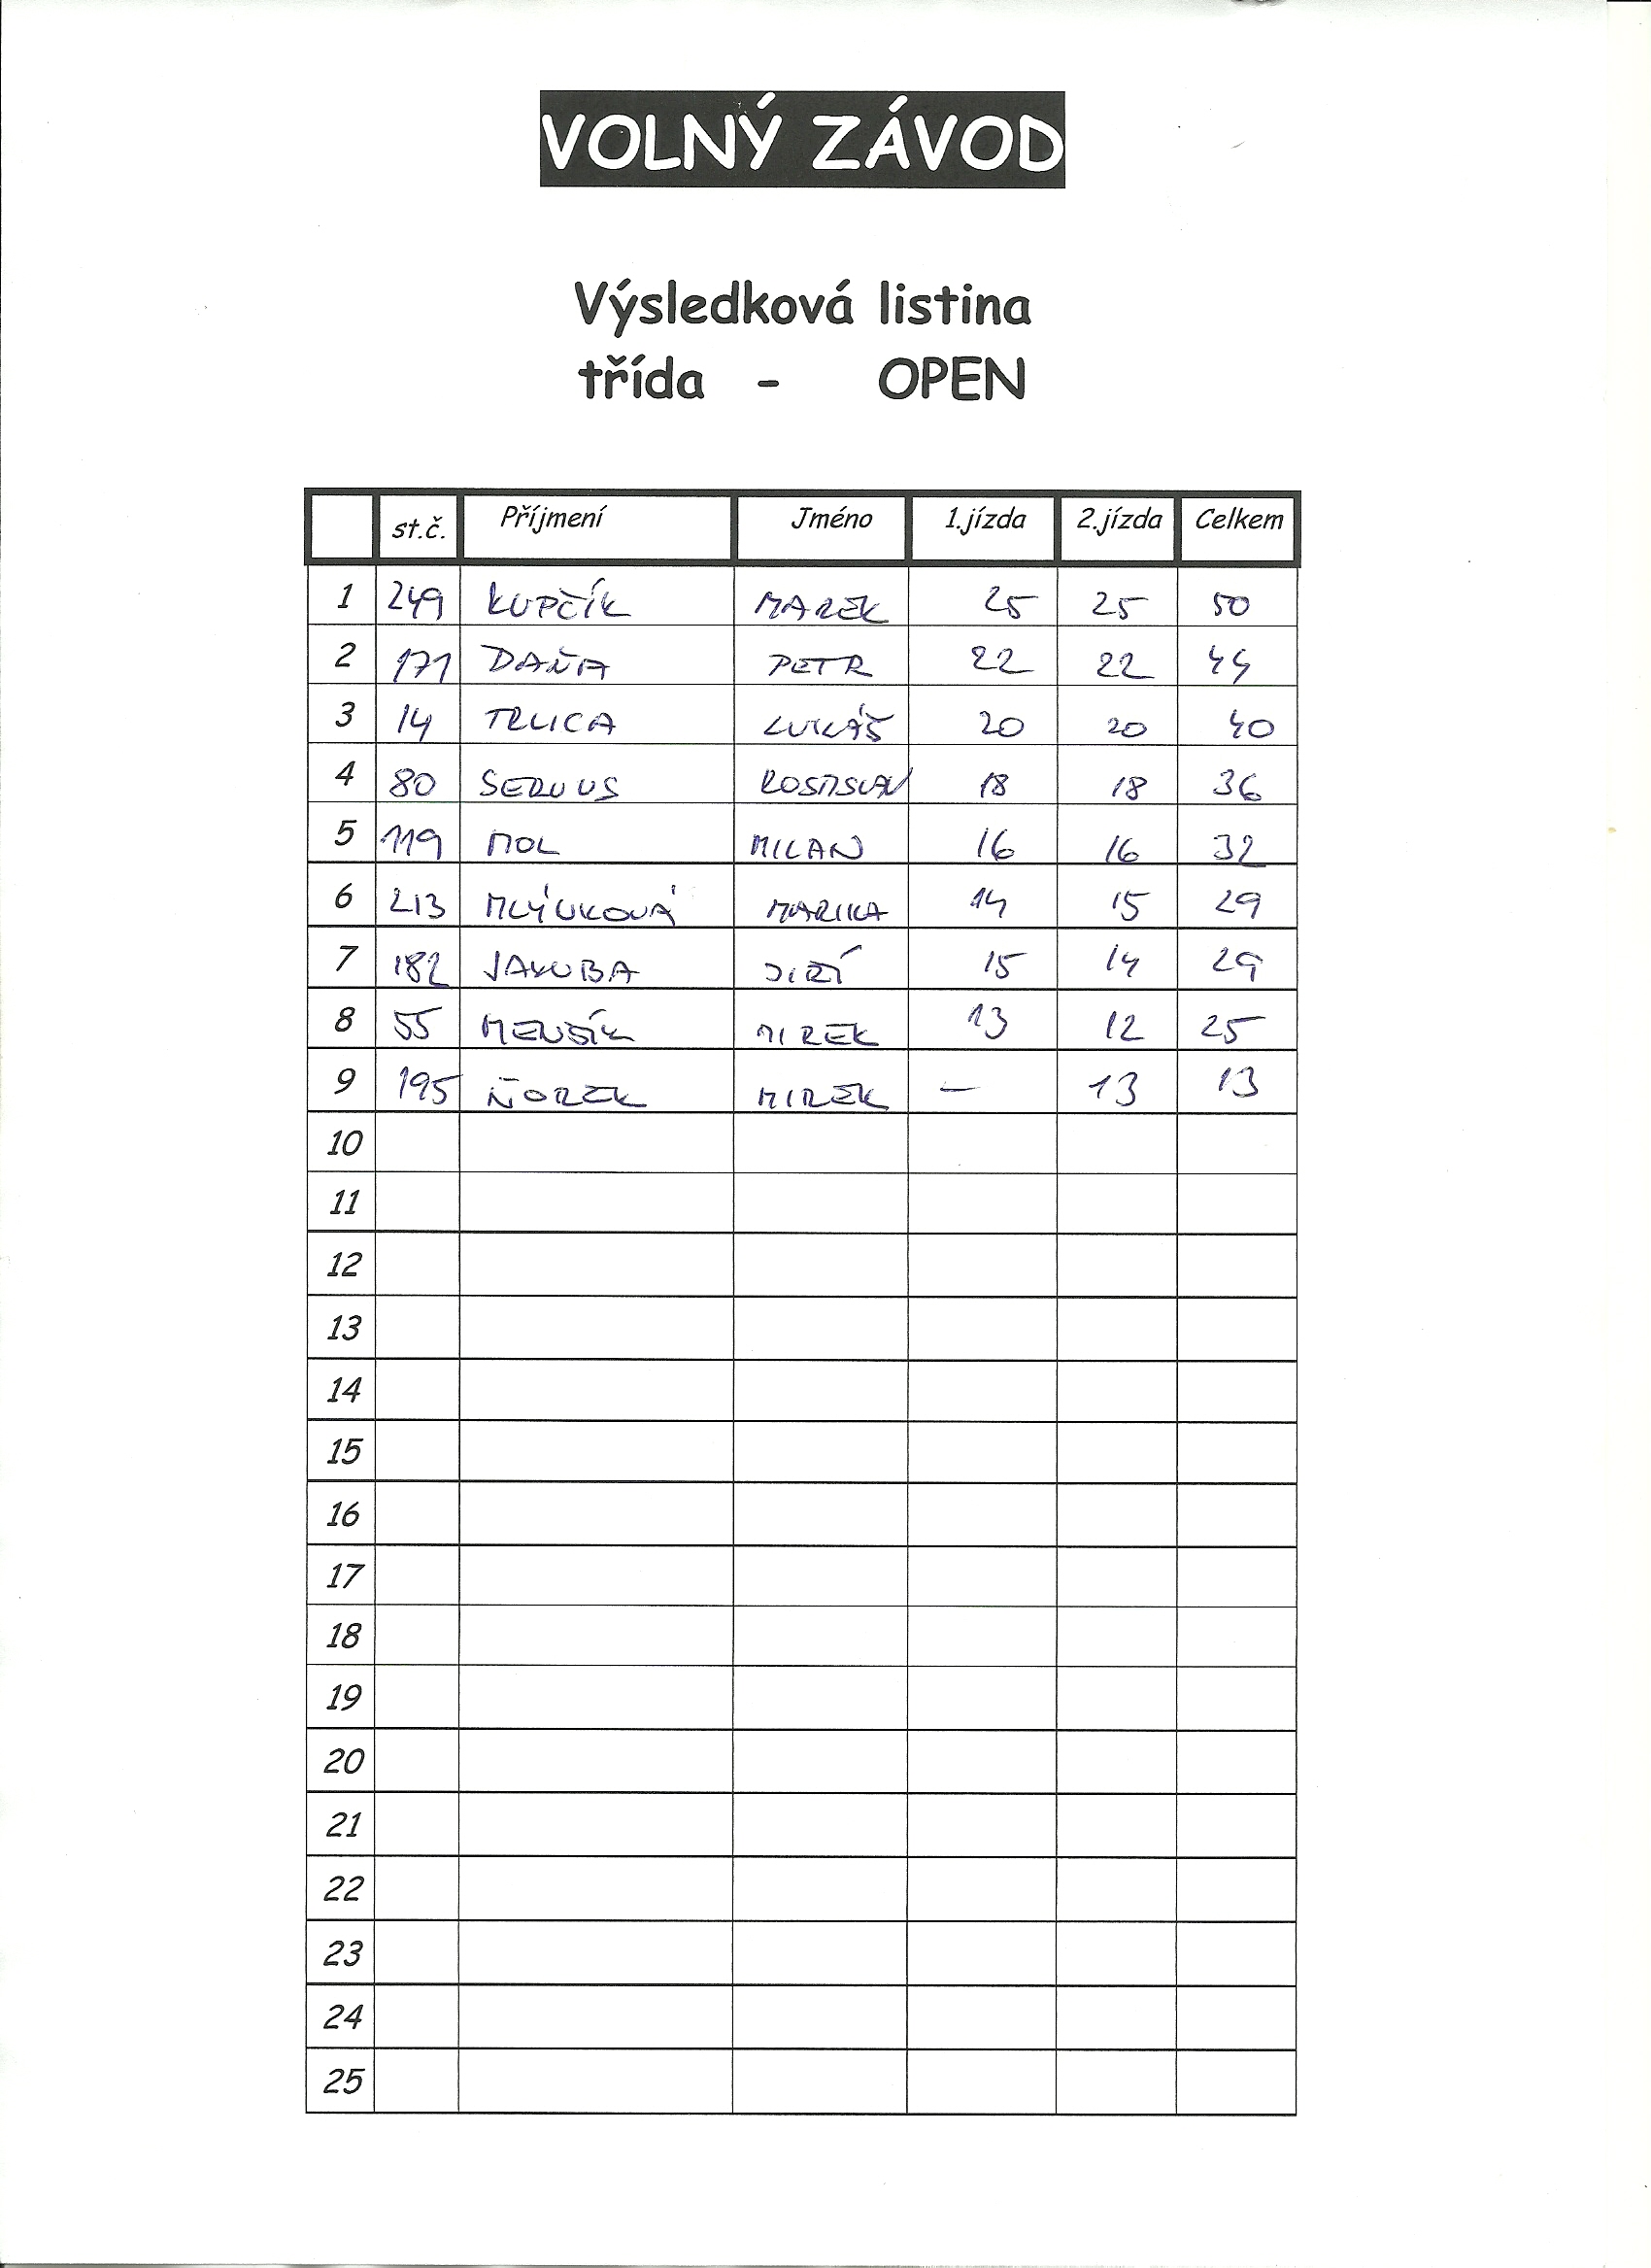 VOLNÝ ZÁVOD
Výsledková listina
třída - OPEN
st.č. Příjmení Jméno 1.jízda 2.jízda Celkem
1 249 KUPČÍK MAREK 25 25 50
2 171 DAŇA PETR 22 22 44
3 14 TRLICA LUKÁŠ 20 20 40
4 80 SERVUS ROSTISLAV 18 18 36
5 119 MOL MILAN 16 16 32
6 213 MLÝNKOVÁ MARIKA 14 15 29
7 182 JAKUBA JIŘÍ 15 14 29
8 55 MENŠÍK MIREK 13 12 25
9 195 MIREK – 13 13
10
11
12
13
14
15
16
17
18
19
20
21
22
23
24
25